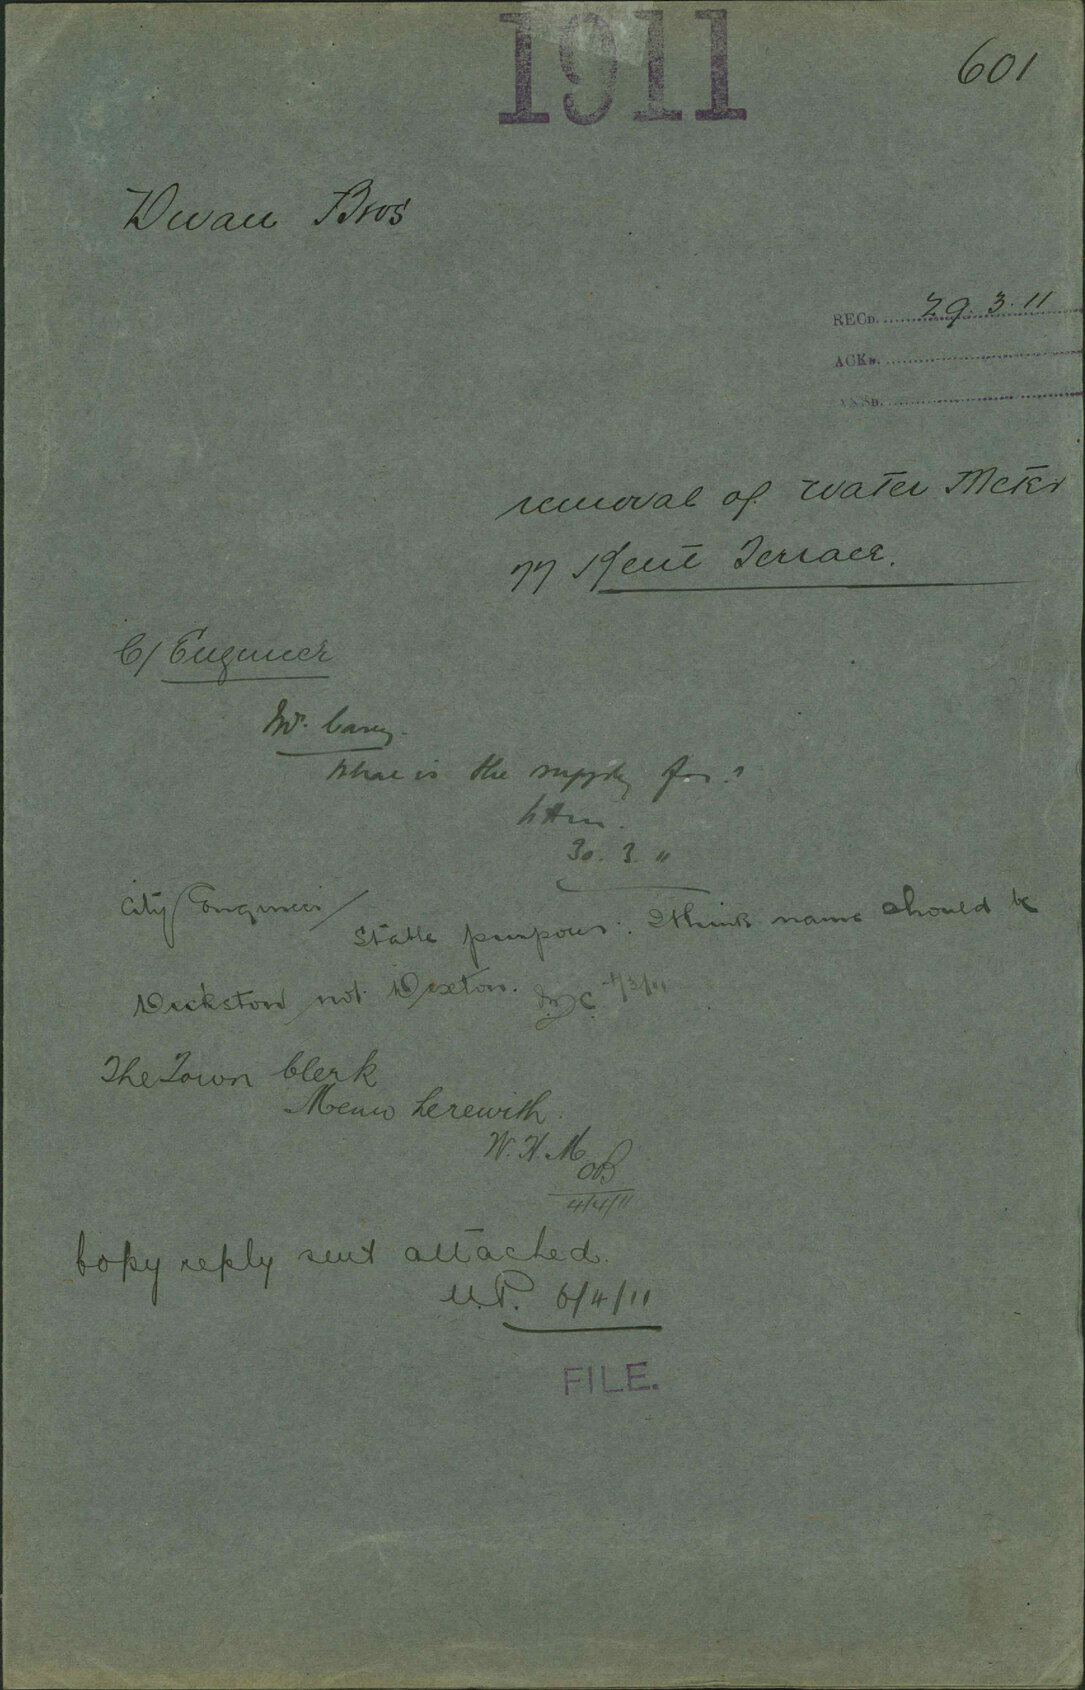 1911
601
Dwan Bros
RECD. 29.3.11
ACKD.
ANSD.
removal of Water Meter
77 Kent Terrace.
C/ Engineer
Mr. Carey.
What is the supply for?
30. 3. 11
City Engineer/
Stable purposes. I think name should be
Dickston not Dixton. /3/11
The Town Clerk
Memo herewith.
W.H.M
4/4/11
Copy reply sent attached.
M.P. 6/4/11
FILE.